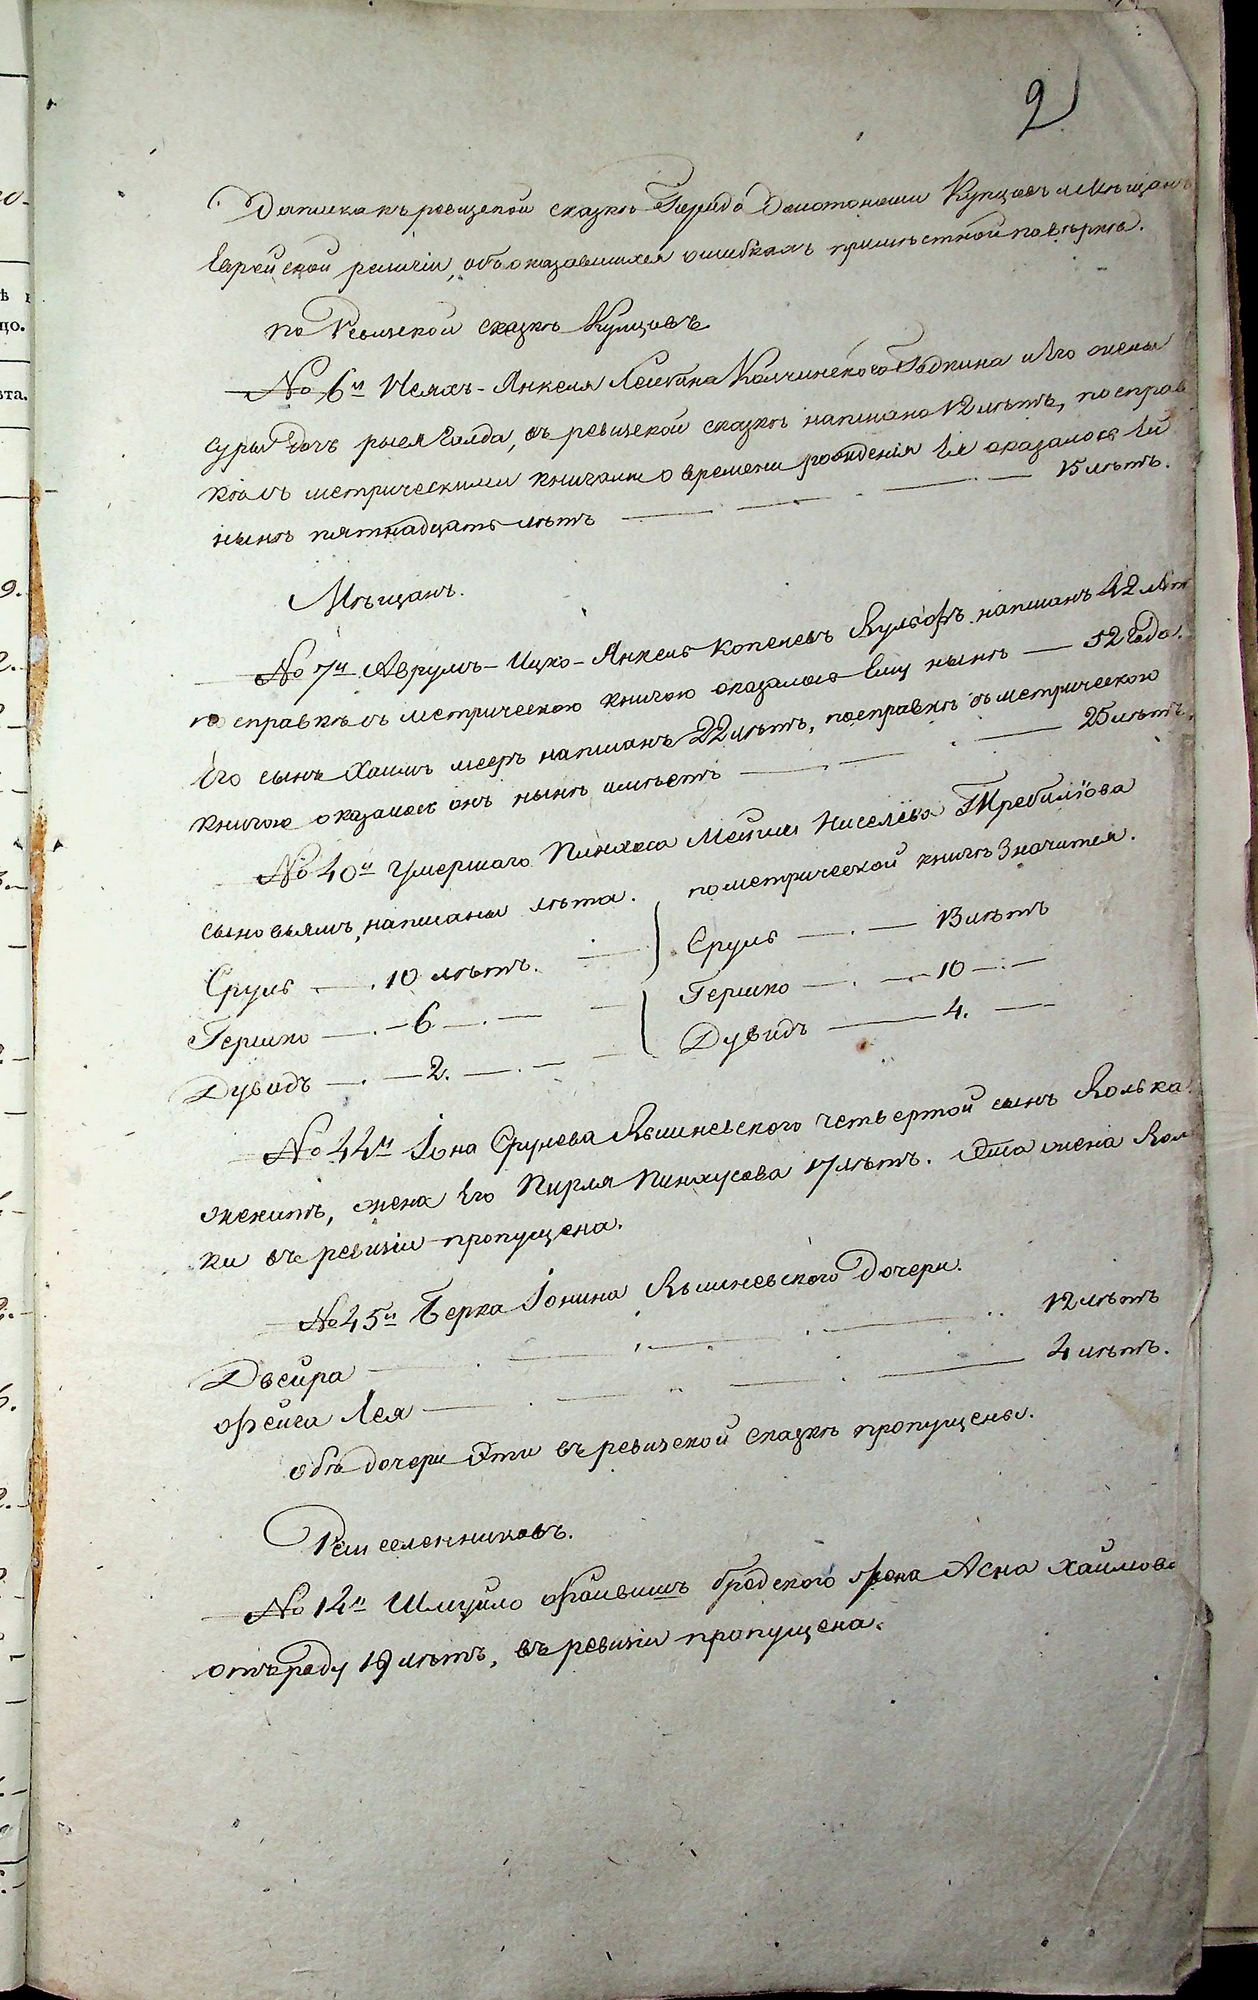 2
Дописка къ ревизской сказкѣ Города Купцовъ и Мѣщанъ
Еврейской религiи, объ оказавшихся ошибкахъ при мѣстной повѣркѣ.
по Ревизской сказкѣ Купцовъ
№ 6й Песахъ-Янкеля и Его жены
Суры дочь Рыся Голда, въ ревизской сказкѣ написано 12 лѣтъ, по справ
кѣ съ метрическими книгами о времени рожденiя Ея оказалось Ей
нынѣ пятнадцать лѣтъ — 15 лѣтъ.
Мѣщанъ.
№ 7й Аврумъ-Ицко-Янкель Копелевъ написанъ 42 лѣт
по справкѣ съ метрическою книгою оказалось Ему нынѣ — 52 Года.
Его сынъ Хаимъ Мееръ написанъ 22 лѣтъ, по справкѣ съ метрическою
книгою оказалось онъ нынѣ имѣетъ — 25 лѣтъ.
№ 40й Умершаго Пинхаса Нисельова
сыновьямъ написаны лѣта. по метрической книгѣ Значится.
Сруль — 10 лѣтъ. Сруль — 13 лѣтъ
Гершко — 6 — Гершко — 10 —
Дувидъ — 2. — Дувидъ — 4. —
№ 44й Iона Срулева Кишиневского четвертой сынъ
женатъ, жена Его Пирля Пинхусова 17 лѣтъ. Эта жена
ки въ ревизiи пропущена.
№ 45й Берка Iонина Кишиневского дочери.
Двейра — 12 лѣтъ
Фейга Лея — 4 лѣтъ.
обѣ дочери Эти въ ревизской сказкѣ пропущены.
Ремесленниковъ.
№ 14й Шмуйло Файвишъ Бродского жена Асна Хаимова
отъ роду 19 лѣтъ, въ ревизiи пропущена.